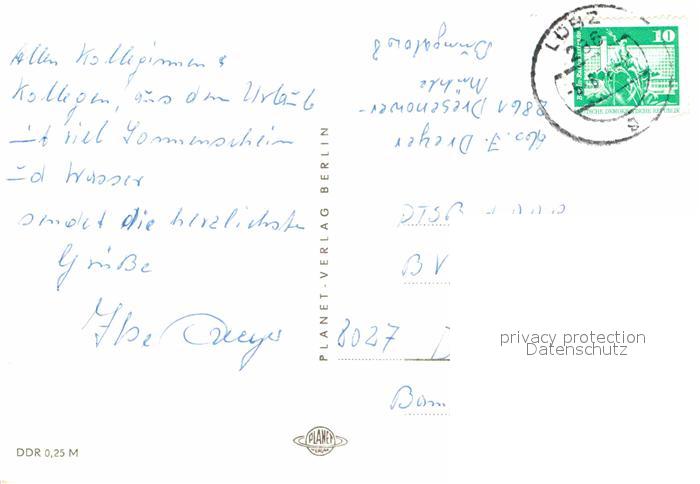 Allen Kolleginnen &
Kollegen, aus dem Urlaub
mit viel Sonnenschein
und Wasser
sendet die herzlichste
Grüße
Ilse Dreyer
PLANET-VERLAG BERLIN
DDR 0,25 M
PLANET
BERLIN
Abs. J. Dreyer
2861 Dresenower-
Mühle
Bungalow 8
LÜBZ
286
10
DEUTSCHE DEMOKRATISCHE REPUBLIK
DTSB
BV
8027 D
privacy protection
Datenschutz